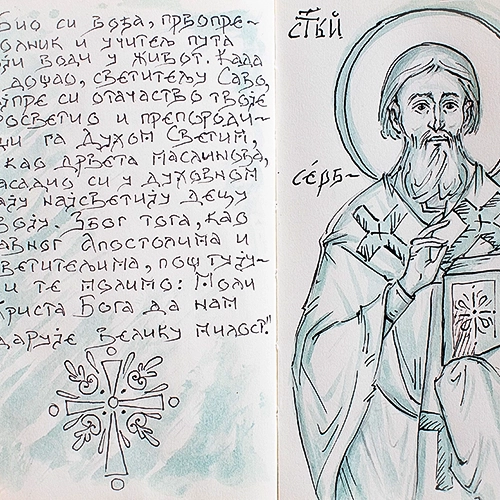 БИО СИ ВОЂА, ПРВОПРЕ-
ОЛНИК И УЧИТЕЉ ПУТА
ОЈИ ВОДИ У ЖИВОТ. КАДА
ДОШАО, СВЕТИТЕЉУ САВО,
ЈПРЕ СИ ОТАЧАСТВО ТВОЈЕ
РОСВЕТИО И ПРЕПОРОДИ-
ШИ ГА ДУХОМ СВЕТИМ,
КАО ДРВЕТА МАСЛИНОВА,
АСАДИО СИ У ДУХОВНОМ
АЈУ НАЈСВЕТИЈУ ДЕЦУ
ВОЈУ. ЗБОГ ТОГА, КАО
АВНОГ АПОСТОЛИМА И
ВЕТИТЕЉИМА, ПОШТУЈУ-
И ТЕ МОЛИМО: МОЛИ
ХРИСТА БОГА ДА НАМ
ДАРУЈЕ ВЕЛИКУ МИЛОСТ."
СТЫЙ
СÉРБ-